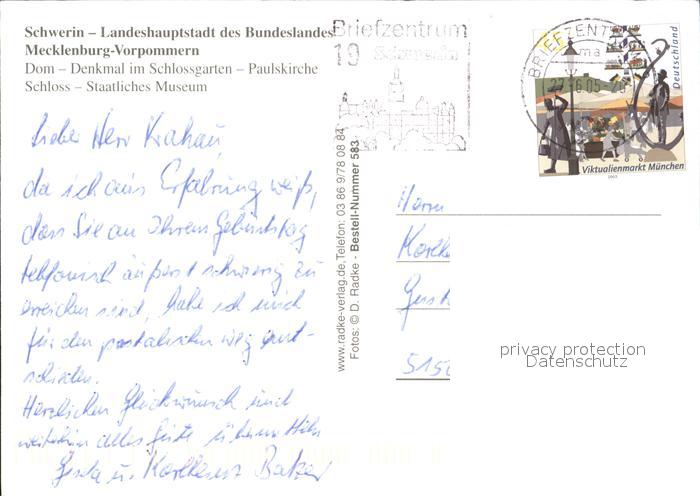 Schwerin – Landeshauptstadt des Bundeslandes
Mecklenburg-Vorpommern
Dom – Denkmal im Schlossgarten – Paulskirche
Schloss – Staatliches Museum
Lieber Herr Krahau,
da ich aus Erfahrung weiß,
dass Sie an Ihrem Geburtstag
telefonisch äußerst schwierig zu
erreichen sind, habe ich mich
für den postalischen Weg ent-
schieden.
Herzlichen Glückwunsch und
weiterhin alles Gute
Gerda u. Karlheinz
www.radke-verlag.de, Telefon: 03 86 9/78 08 84
Fotos: © D. Radke - Bestell-Nummer 583
Briefzentrum
19 Schwerin
BRIEFZENTRUM
ma
27.6.05
Deutschland
Viktualienmarkt München
2003
Herrn
5150
privacy protection
Datenschutz